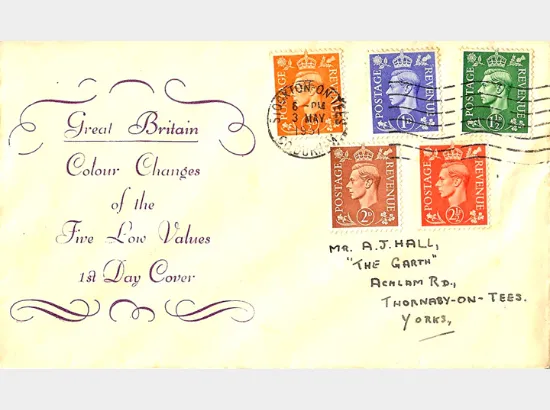 Great Britain
Colour Changes
of the
Five Low Values
1st Day Cover
POSTAGE REVENUE
STOCKTON-ON-TEES
6 - PM
3 MAY
1951
CO. DURHAM
POSTAGE REVENUE
1D
POSTAGE REVENUE
1½D
POSTAGE REVENUE
2D
POSTAGE REVENUE
2½D
MR. A.J. HALL,
"THE GARTH"
ACKLAM RD.,
THORNABY-ON-TEES.
YORKS,